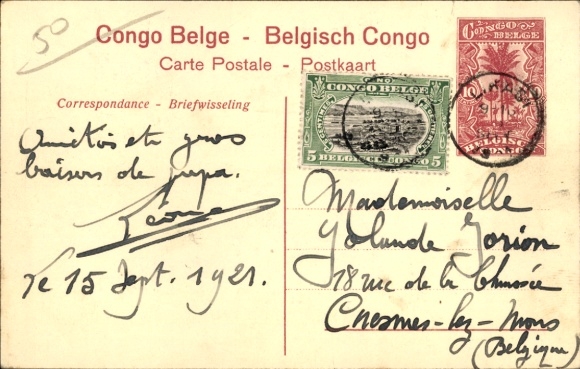 50
Congo Belge - Belgisch Congo
Carte Postale - Postkaart
Correspondance - Briefwisseling
CONGO BELGE
5 CENTIMES
BELGISCH CONGO 5
CONGO BELGE
10
BELGISCH CONGO
Amitiés et gros
baisers de papa.
Léona
le 15 Sept. 1921.
Mademoiselle
Yolande Jorion
18 rue de la Chaussée
Cuesmes-lez-Mons
(Belgique)